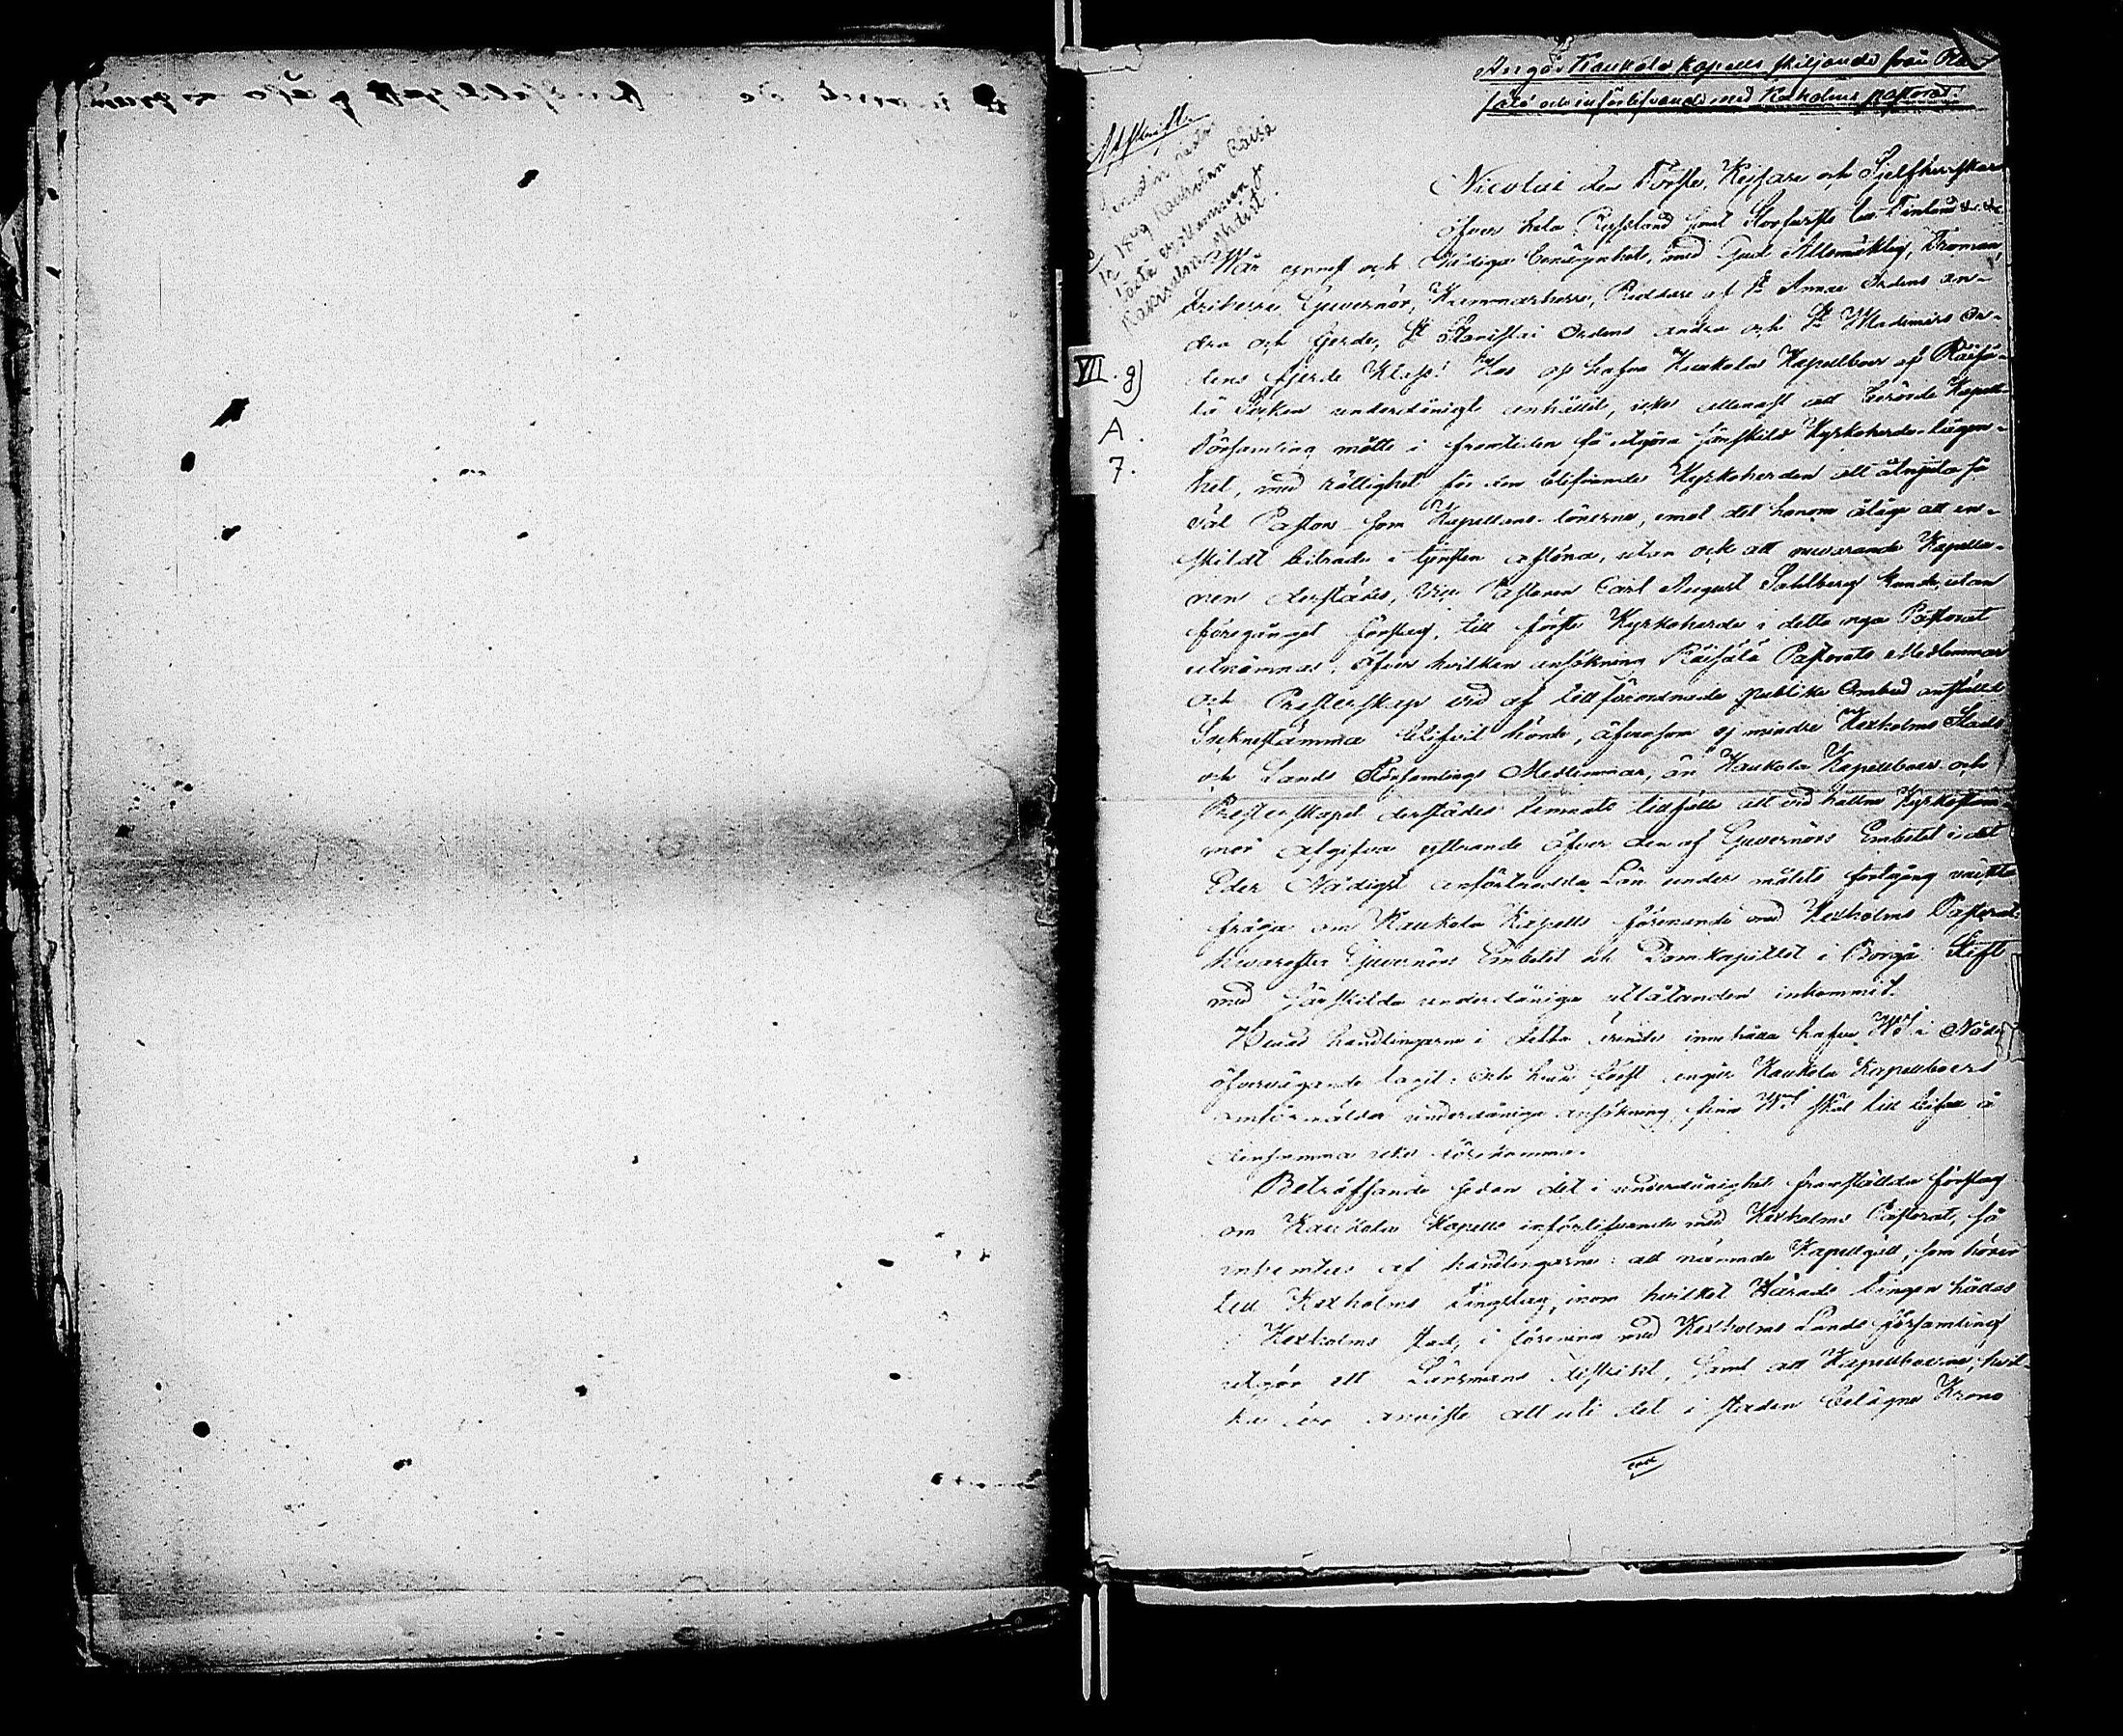 Angår Kaukola kapells skiljande från Räi-
sälä och införlifvande med Kexholms pastorat.
Afskrift
1849 Kaukolan Räisä
VII. g)
A.
7.
Nicolai den Förste, Kejsare och Sjelfherrskare
öfver hela Ryssland samt Storfurste till Finland &c. &c.
Wår ynnest och Nådiga benägenhet, med Gud Allsmäktig, Troman
Friherre Guvernör, Kammarherre, Riddare af St Annae Ordens an-
dra och fjerde, St Stanislai Ordens andra och St Wladimirs Or-
dens fjerde Klass! Hos oss hafva Kaukola Kapellboer af Räisä-
lä Socken underdånigst anhållit, icke allenast att berörde Kapell-
Församling måtte i framtiden få utgöra särskild Kyrkoherde-lägen-
het, med rättighet för den blifvande Kyrkoherden att åtnjuta så
väl Pastors- som Kapellans-lönerne, emot det honom ålåge att en-
skildt biträde i tjensten aflöna, utan ock att nuvarande Kapella-
nen derstädes, Vice Pastoren Carl August Sahlberg kunde, utan
föregånget förslag, till förste Kyrkoherde i detta nya Pastorat
utnämnas; öfver hvilken ansökning Räisälä Pastorats Medlemmar
och Presterskap vid af tillförordnade publika Ombud anställd
Socknestämma blifvit hörde, äfvensom ej mindre Kexholms Stads
och Lands Församlings Medlemmar, än Kaukola Kapellboer och
Presterskapet derstädes lemnats tillfälle att vid hållne Kyrkostäm-
mor afgifva yttrande öfver den af Guvernörs Embetet i det
Eder Nådigst anförtrodda Län under målets fortgång väckta
fråga om Kaukola Kapells förenande med Kexholms Pastorat;
hvarefter Guvernörs Embetet och Domkapitlet i Borgå Stift
med särskilda underdåniga utlåtanden inkommit.
Hvad handlingarne i detta ärende innehålla hafva Wi i Nåder
öfvervägande tagit: och hvad först angår Kaukola Kapellboers
omförmälda underdåniga ansökning, finna Wi skäl till bifall å
densamma icke förekomma.
Beträffande sedan det i underdånighet framställda förslag
om Kaukola Kapells införlifvande med Kexholms Pastorat, så
inhemtas af handlingarne: att nämnde Kapellgäll, som hörer
till Kexholms Tingslag, inom hvilket Härads tingen hållas
i Kexholms stad, i förening med Kexholms Lands församling
utgör ett Länsmans distrikt, samt att Kapellboerne, hvil-
ka äro anviste att uti det i staden belägne Krono